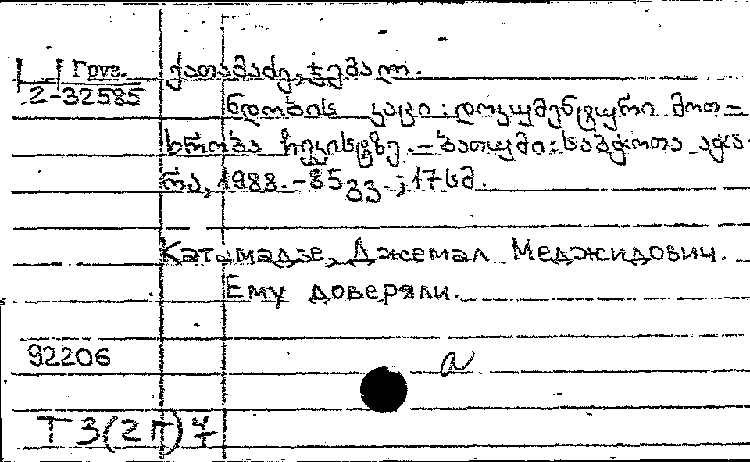 Груз.
2-32585
ქათამაძე, ჯემალ.
ნდობის კაცი: დოკუმენტური მოთ-
ხრობა ჩეკისტზე. - ბათუმი: საბჭოთა აჭა-
რა, 1988. - 85 გვ.; 17 სმ.
Катамадзе, Джемал Меджидович.
Ему доверяли.
92206
a
Т 3(2Г)4